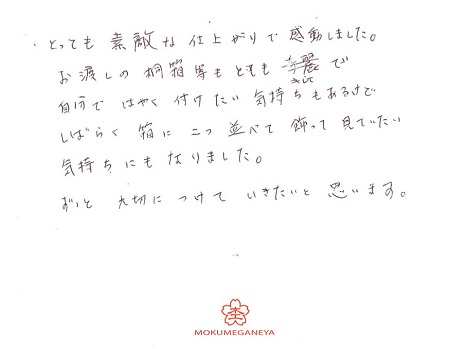 とっても 素敵な仕上がりで 感動しました。
お渡しの桐箱等もとても 華麗で
きれい
自分で はやく 付けたい気持ちもあるけど
しばらく 箱に 二つ並べて 飾って見ていたい
気持ちにもなりました。
ずっと 大切に つけて いきたいと 思います。
MOKUMEGANEYA